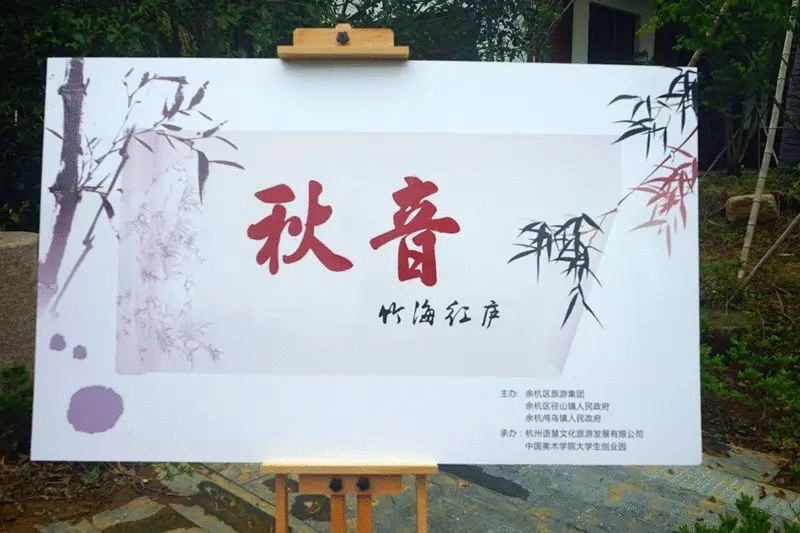 秋音
竹海红庐
主办: 余杭区旅游集团
余杭区径山镇人民政府
余杭鸬鸟镇人民政府
承办: 杭州语慧文化旅游发展有限公司
中国美术学院大学生创业园